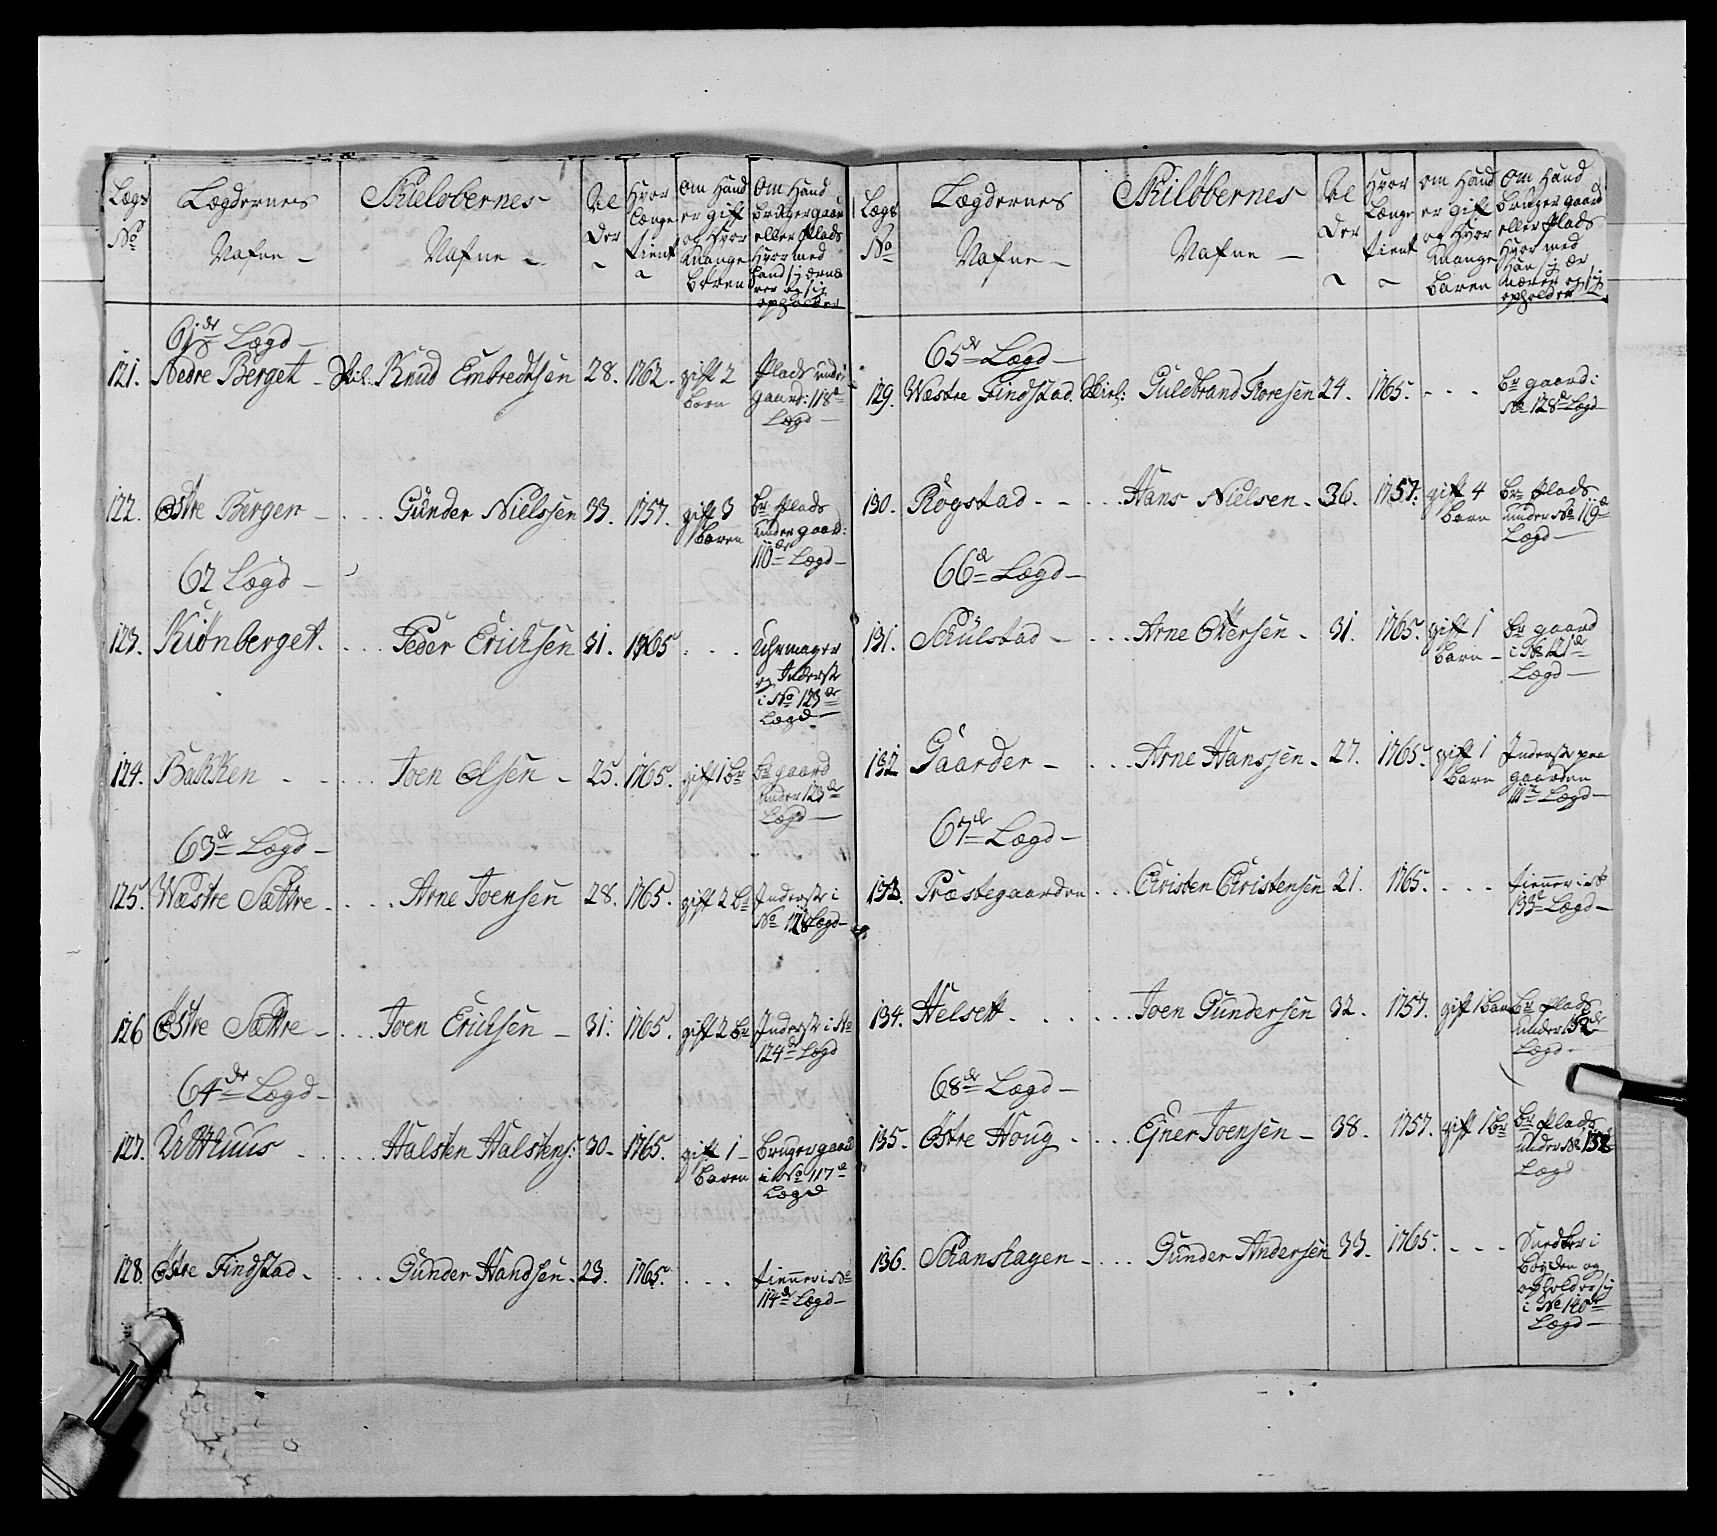 Lægs No
Lægdernes Nafne
Skieløbernes Nafne
Al der
Hvor Længe tient
Om Hand er gift og Hvor mange børen
Om Hand bruger gaard eller Plads Hvor med hand sig ærnerer og sig opholder
61de Lægd
121. Nedre Berget Skil: Knud Embredtsen 28. 1762. gift 2 børn Plads under gaard: 118de Lægd
122. Østre Bergen Gunder Nielssen 33. 1757. gift 3 børen br Plads under gaard: 110de Lægd
62 Lægd
123. Kiønberget Peder Ericksen 31. 1765 Uhrmager og Inderste i No 123de Lægd
124. Bakken Joen Olsen 25. 1765. gift 1 br br gaard under 123de Lægd
63de Lægd
125. Wæstre Sættre Arne Joensen 28. 1765. gift 2 br Inderste i No 128 Lægd
126 Østre Sættre Joen Ericksen 31. 1765. gift 2 br Inderste i No 124de Lægd
64de Lægd
127. Utthuus Halsten Halstens: 30 1765. gift 1 børen bruger gaard i No 117de Lægd
128. Østre Findstad Gunder Handsen 23. 1765. tienner i No 114de Lægd
Lægs No
Lægdernes Nafne
Skiløbernes Nafne
Al der
Hvor Længe tient
om Hand er gift og Hvor mange børen
Om Hand bruger gaard eller Plads Hvor med Han sig ær nærer og sig opholder
65de Lægd
129. Wæstre Findstad. Skiel: Guldbrand Thoresen 24. 1765. br gaard i No 128de Lægd
130. Rogstad Hans Nielsen 36. 1757. gift 4 børn br Plads under No 119de Lægd
66de Lægd
131. Schulstad Arne Ottersen 31. 1765. gift 1 barn br gaard i No 121de Lægd
132 Gaarder Arne Hanssen 27. 1765. gift 1 barn Inderste paa gaarden 111te Lægd
67de Lægd
133. Præstegaarden Christen Christensen 21. 1765. tienner i No 133de Lægd
134. Helsett Joen Gundersen 32. 1757. gift 1 barn br Plads under 132de Lægd
68de Lægd
135. Østre Houg Ejner Joensen 38. 1757. gift 1 br br Plads under No 132 Lægd
136. Schanshagen Gunder Andersen 33. 1765. Snedker i bøyden og opholder sig i No 140de Lægd